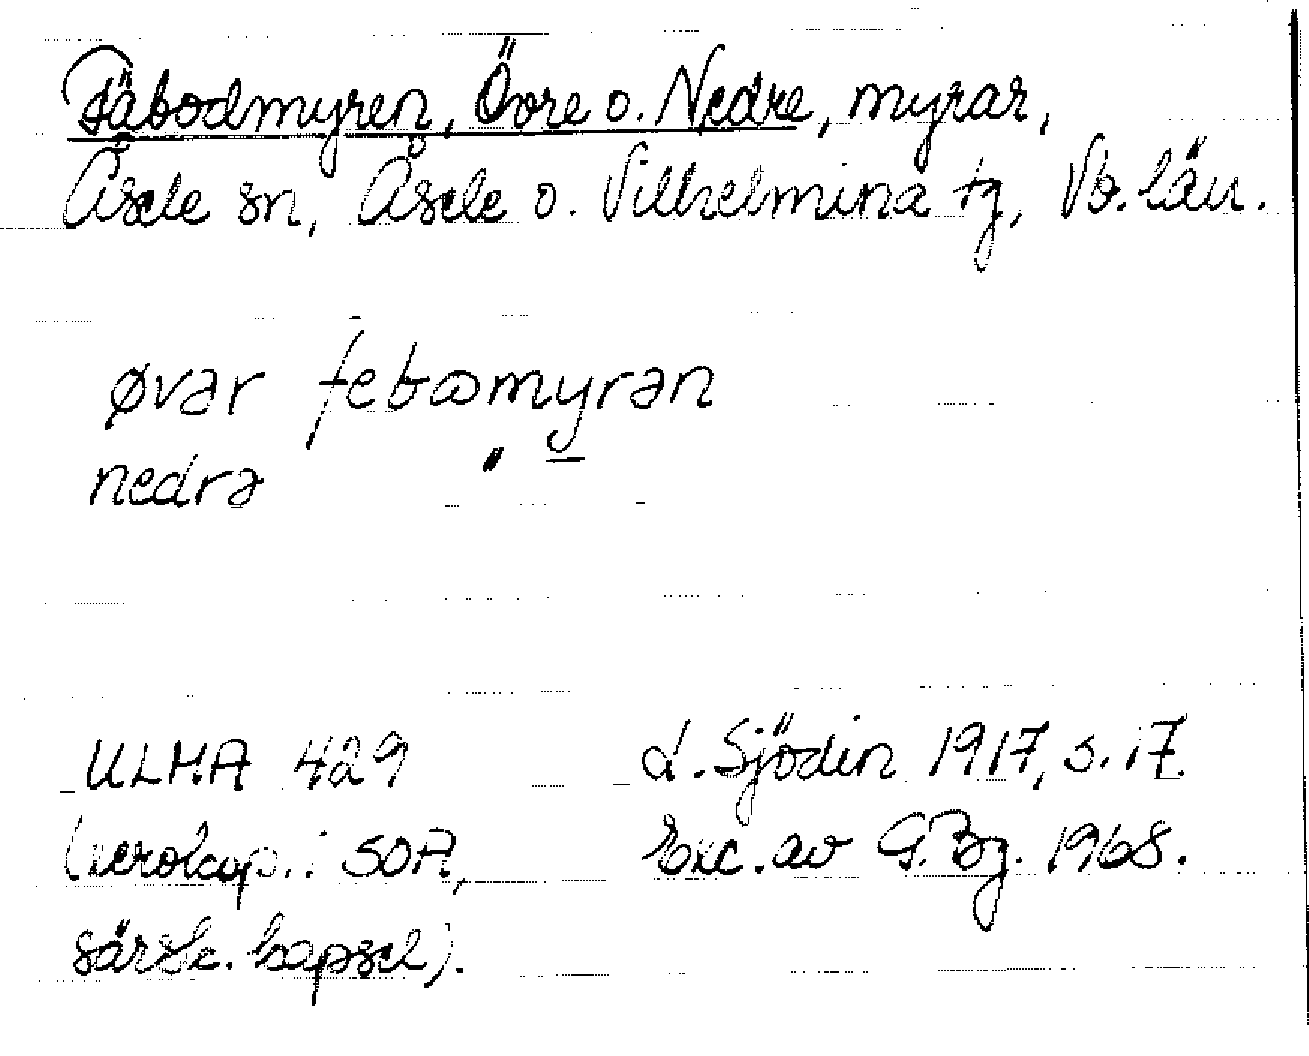 Fäbodmyren, Övre o. Nedre, myrar,
Åsele sn, Åsele o. Vilhelmina tg, Vb. län.
øvər febωmyrən
nedrə "
ULMA 429
(xerokop. i SOA,
särsk. kapsel).
L. Sjödin 1917, s. 17.
Exc. av G. Bg. 1968.